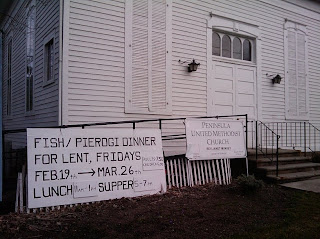 FISH/PIEROGI DINNER
FOR LENT, FRIDAYS
FEB.19th → MAR.26th
LUNCH 11AM-1PM SUPPER 5-7PM
PENINSULA
UNITED METHODIST
CHURCH